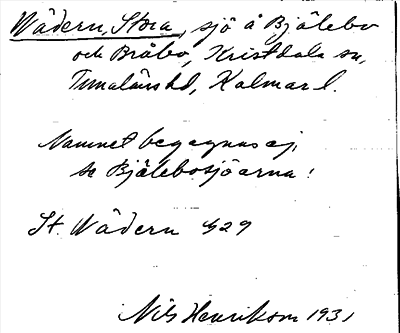 Wådern, Stora, sjö å Bjälebo
och Bråbo, Kristdala sn,
Tunaläns hd, Kalmar l.
Namnet begagnas ej,
se Bjälebosjöarna!
St. Wådern 429
Nils Henrikson 1931